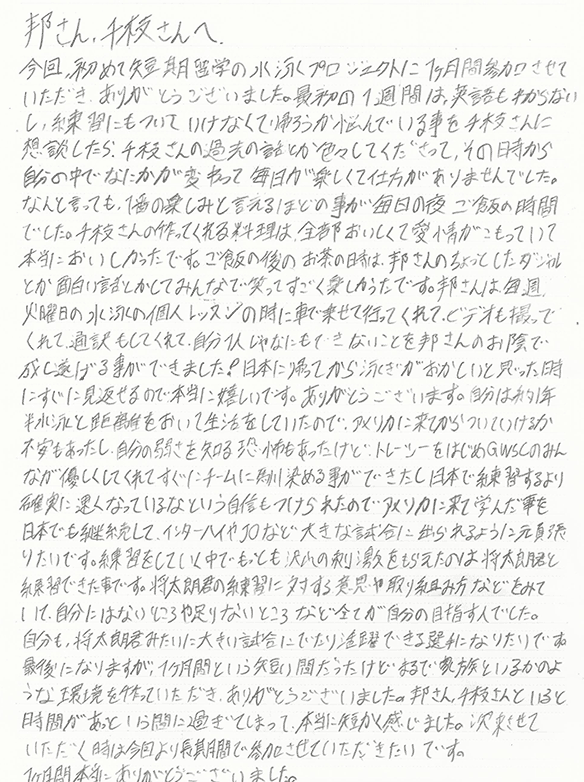 邦さん、千枝さんへ
今回、初めて短期留学の水泳プロジェクトに1ヶ月間参加させて
いただき、ありがとうございました。最初の1週間は、英語もわからない
し、練習にもついていけなくて帰ろうか悩んでいる事を千枝さんに
想談したら、千枝さんの過去の話とか色々してくださって、その日時から
自分の中でなにかが変わって毎日が楽しくて仕方がありませんでした。
なんと言っても、1番の楽しみと言えるほどの事が毎日の夜ご飯の時間
でした。千枝さんの作ってくれる料理は、全部おいしくて愛情がこもっていて
本当においしかったです。ご飯の後のお茶の時は、邦さんのちょっとしたダジャレ
とか面白い話とかしてみんなで笑ってすごく楽しかったです。邦さんは毎週
火曜日の水泳の個人レッスンの時に車で乗せて行ってくれて、ビデオも撮って
くれて、通訳もしてくれて、自分1人じゃなにもできないことを邦さんのお陰で
成し遂げる事ができました!日本に帰ってから泳ぎがおかしいと思った時
にすぐに見返せるので本当に嬉しいです。ありがとうございます。自分は約1年
半水泳と距離をおいて生活をしていたので、アメリカに来てからついていけるか
不安もあったし、自分の弱さを知る恐怖もあったけど、トレーシーをはじめGWSCのみん
なが優しくしてくれてすぐにチームに馴染める事ができたし日本で練習するより
確実に速くなっているなという自信もつけられたのでアメリカに来て学んだ事を
日本でも継続して、インターハイやJOなど大きな試合に出られるように頑張
りたいです。練習をしていく中でもっとも沢山の刺激をもらえたのは将太郎君と
練習できた事です。将太郎君の練習に対する意思や取り組み方などをみて
いて、自分にはないところや足りないところなど全てが自分の目指す人でした。
自分も、将太郎君みたいに大きい試合にでたり活躍できる選手になりたいです。
最後になりますが、1ヶ月間という短い間だったけどまるで家族といるかのよ
うな環境を作っていただき、ありがとうございました。邦さん、千枝さんといると
時間があっという間に過ぎてしまって、本当に短かく感じました。次来させて
いただく時は今回より長期間で参加させていただきたいです。
1ヶ月間本当にありがとうございました。